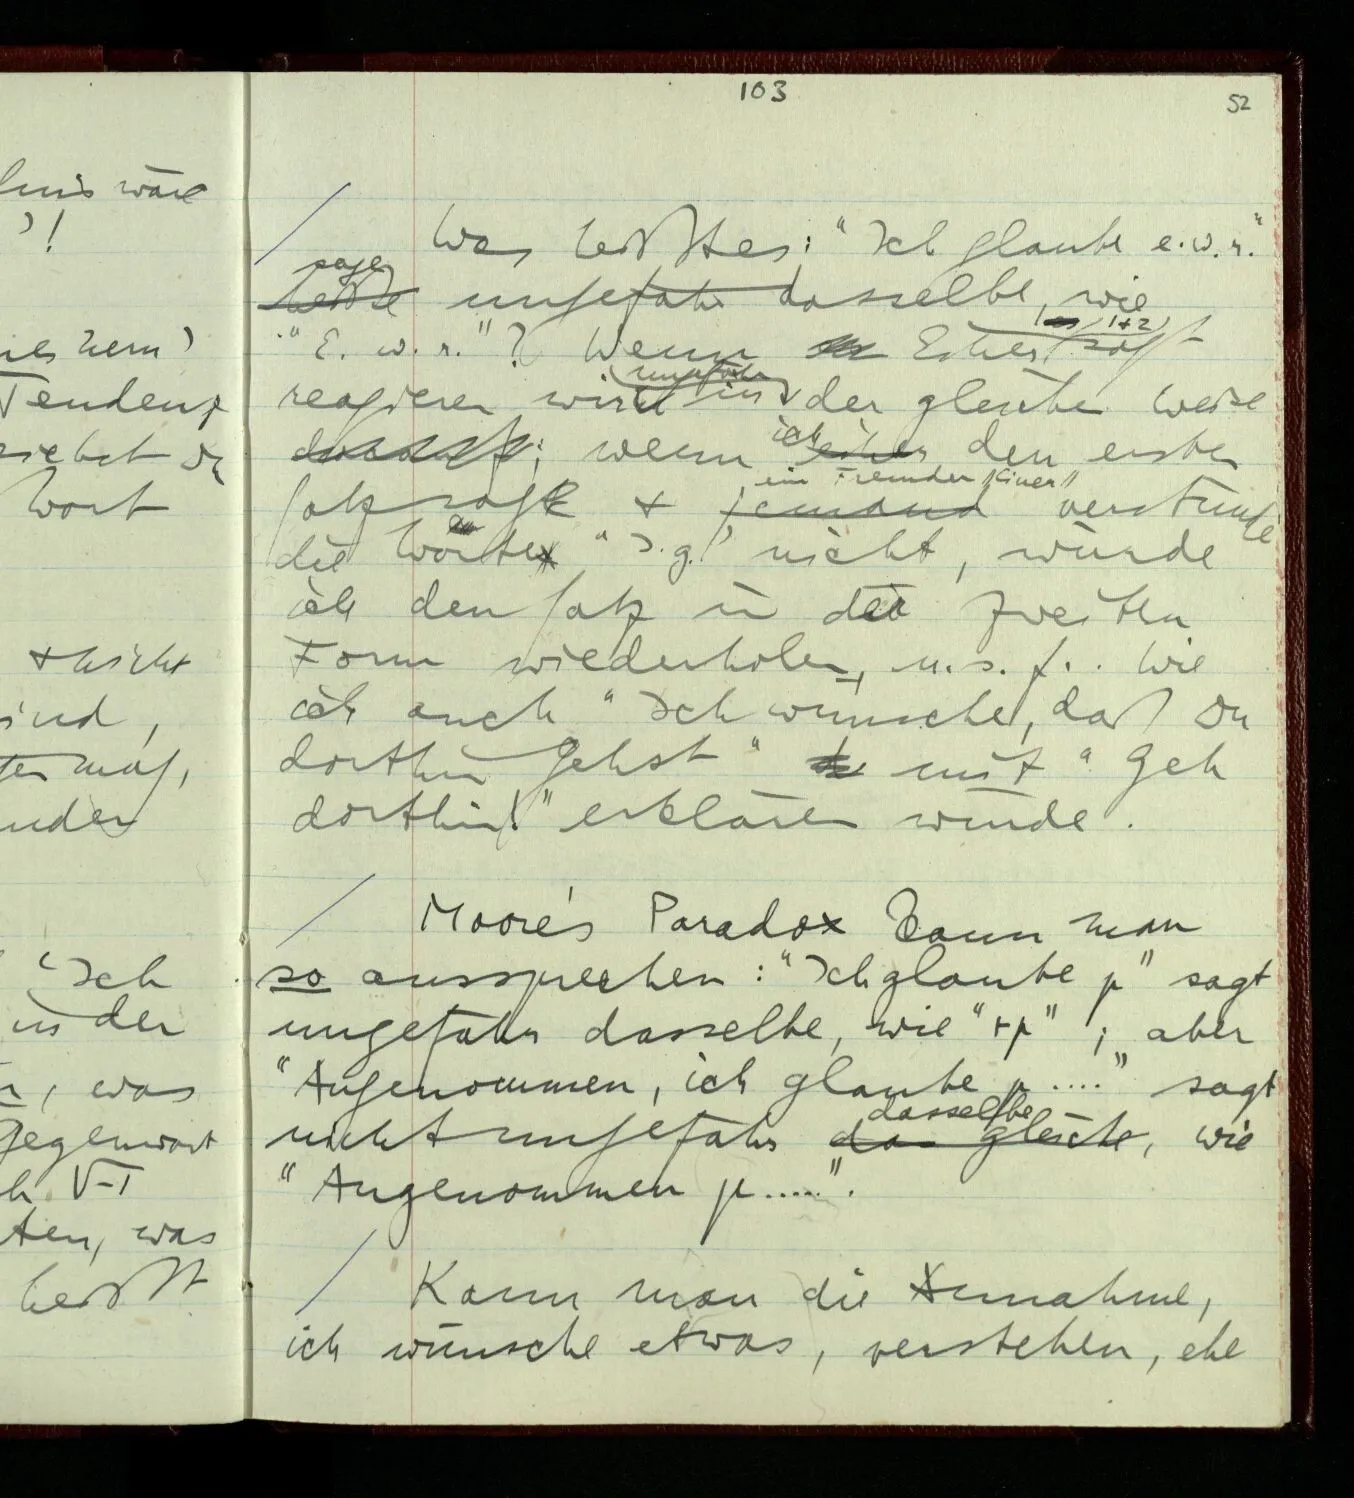 lnis wäre
"!
Tendenz
siehst Du
Wort
+ nicht
sind,
"Ich
in der
, was
Gegenwart
V-T
ten, was
heißt
103
52
Was heißt es: "Ich glaube e.w.r."
sage
heiße ungefähr dasselbe, wie
"E. w. r."? Wenn Einer sagt
1+2
ungefähr
reagieren wird in der gleichen Weise
darauf; wenn einer den ersten
ich
ein Fremder "Einer"
Satz sagt + jemand verstünde
die Wörter "I.g." nicht, würde
ich den Satz in der zweiten
Form wiederholen, u.s.f.. Wie
ich auch "Ich wünsche, daß Du
dorthin gehst" mit "Geh
dorthin!" erklären würde.
Moore's Paradox kann man
so aussprechen: "Ich glaube p" sagt
ungefähr dasselbe, wie "⊢p"; aber
"Angenommen, ich glaube p...." sagt
dasselbe
nicht ungefähr das gleiche, wie
"Angenommen p.....".
Kann man die Annahme,
ich wünsche etwas, verstehen, ehe